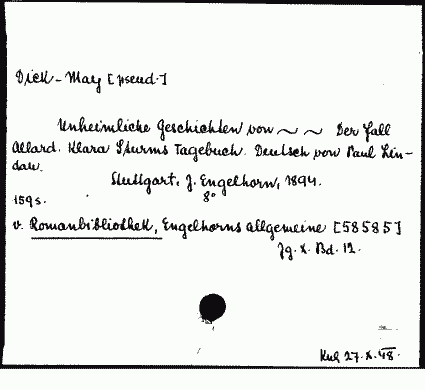 Dick-May [pseud.]
Unheimliche Geschichten von ~ ~ Der Fall
Allard. Klara Sturms Tagebuch. Deutsch von Paul Lin-
dau.
Stuttgart, J. Engelhorn, 1894.
8°
159 s.
v. Romanbibliothek, Engelhorns allgemeine [58585]
Jg. X. Bd. 12.
27.X.48.